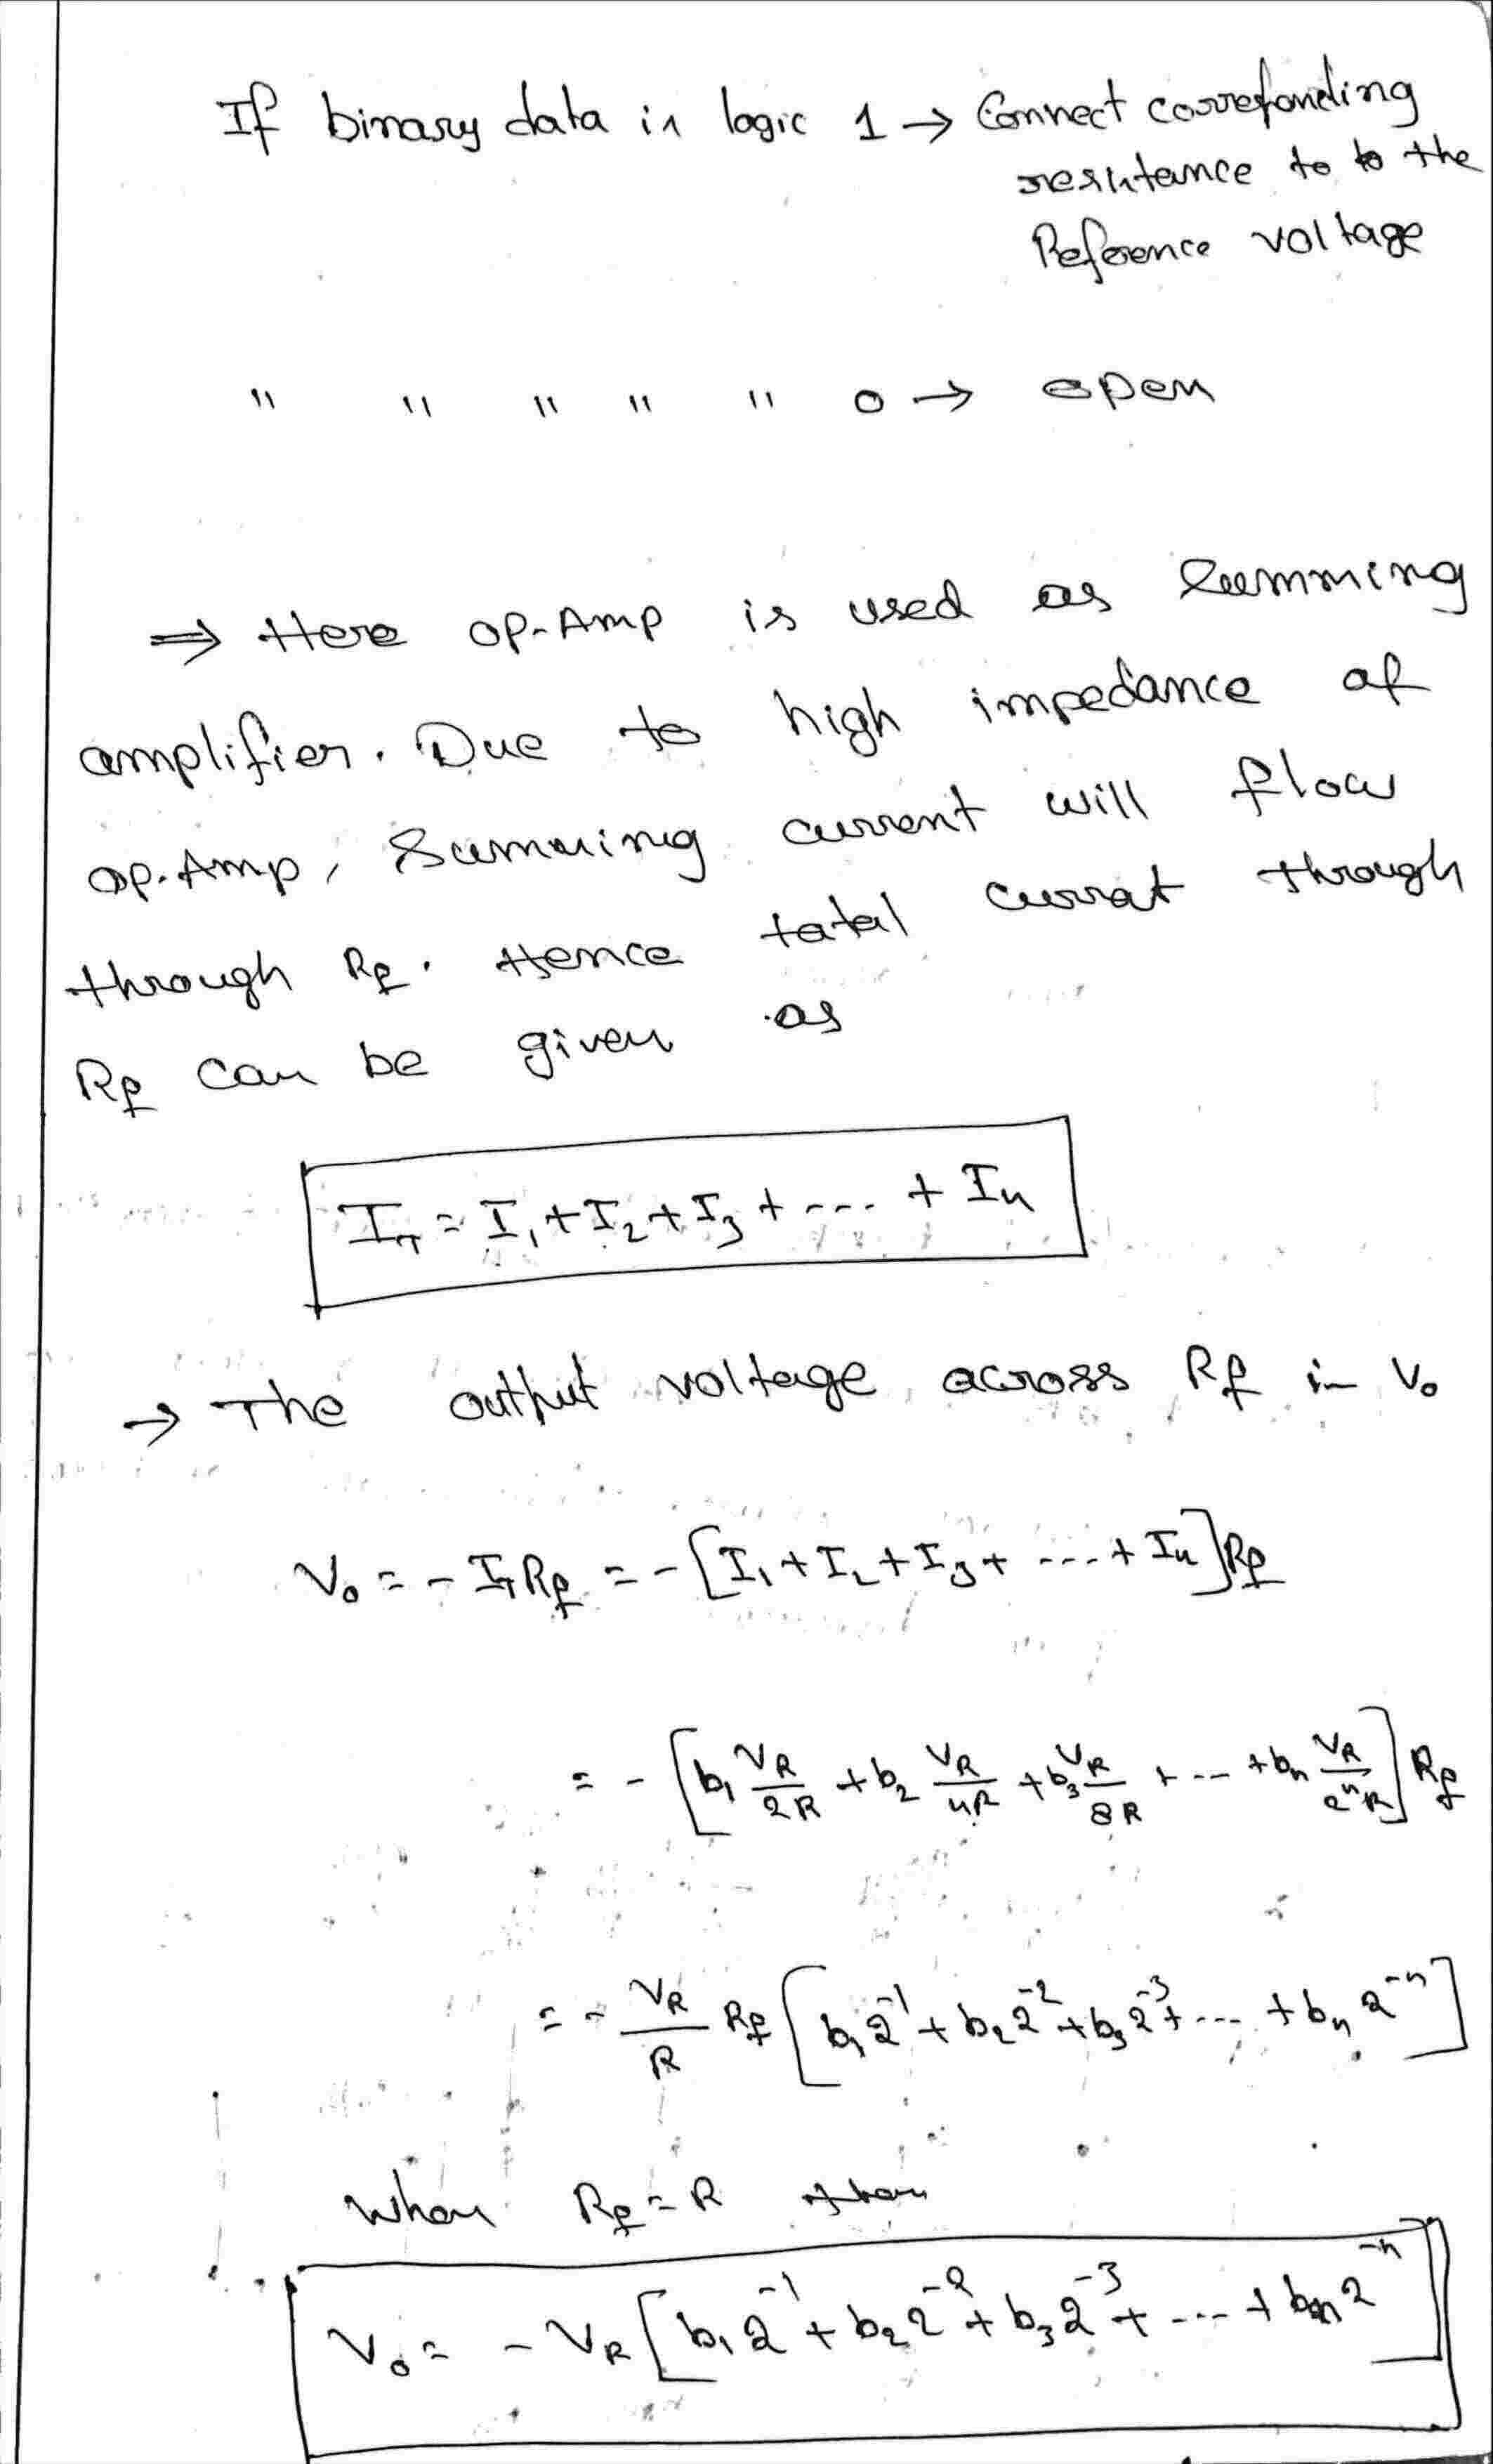 If binary data is logic 1 → Connect corresponding
resistance to to the
Reference voltage
" " " " " 0 → open
⇒ Here op-Amp is used as summing
amplifier. Due to high impedance of
op.Amp, Summing current will flow
through Rf. Hence total currat through
Rf can be given as
I_T = I₁ + I₂ + I₃ + --- + Iₙ
→ The output voltage across Rf is V₀
V₀ = - I_T Rf = - [I₁ + I₂ + I₃ + --- + Iₙ] Rf
= - [b₁ V_R/2R + b₂ V_R/4R + b₃ V_R/8R + --- + bₙ V_R/2ⁿR] Rf
= - V_R/R Rf [b₁ 2⁻¹ + b₂ 2⁻² + b₃ 2⁻³ + --- + bₙ 2⁻ⁿ]
When Rf = R then
V₀ = - V_R [b₁ 2⁻¹ + b₂ 2⁻² + b₃ 2⁻³ + --- + bₙ 2⁻ⁿ]